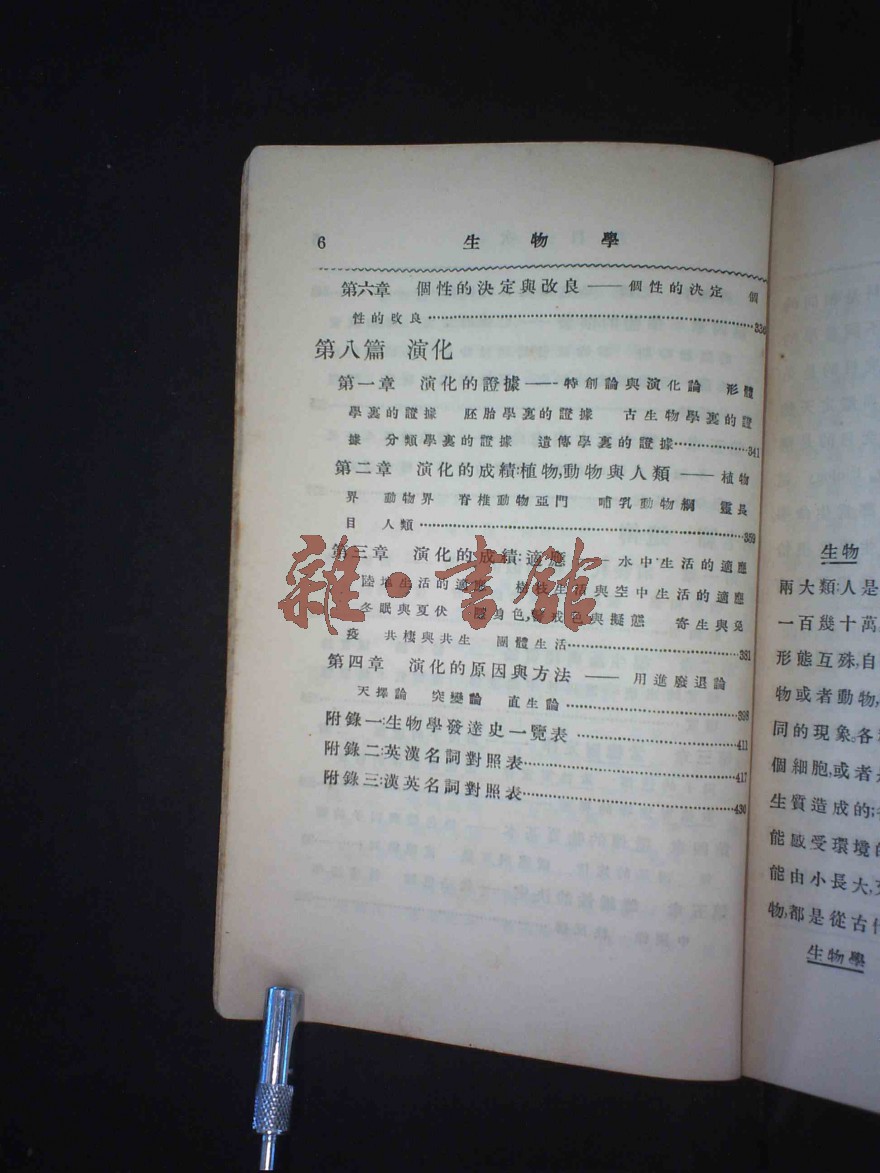 6 生物學
第六章 個性的決定與改良——個性的決定 個
性的改良……336
第八篇 演化
第一章 演化的證據——特創論與演化論 形體
學裏的證據 胚胎學裏的證據 古生物學裏的證
據 分類學裏的證據 遺傳學裏的證據……341
第二章 演化的成績:植物,動物與人類——植物
界 動物界 脊椎動物亞門 哺乳動物綱 靈長
目 人類……359
第三章 演化的成績:適應——水中生活的適應
陸地生活的適應 樹枝生活與空中生活的適應
冬眠與夏伏 隱身色,警戒色與擬態 寄生與免
疫 共棲與共生 團體生活……381
第四章 演化的原因與方法——用進廢退論
天擇論 突變論 直生論……398
附錄一:生物學發達史一覽表……411
附錄二:英漢名詞對照表……417
附錄三:漢英名詞對照表……430
雜·書館
生物
兩大類:人是
一百幾十萬
形態互殊,自
物或者動物,
同的現象。各
個細胞,或者
生質造成的;
能感受環境的
能由小長大,
物,都是從古代
生物學